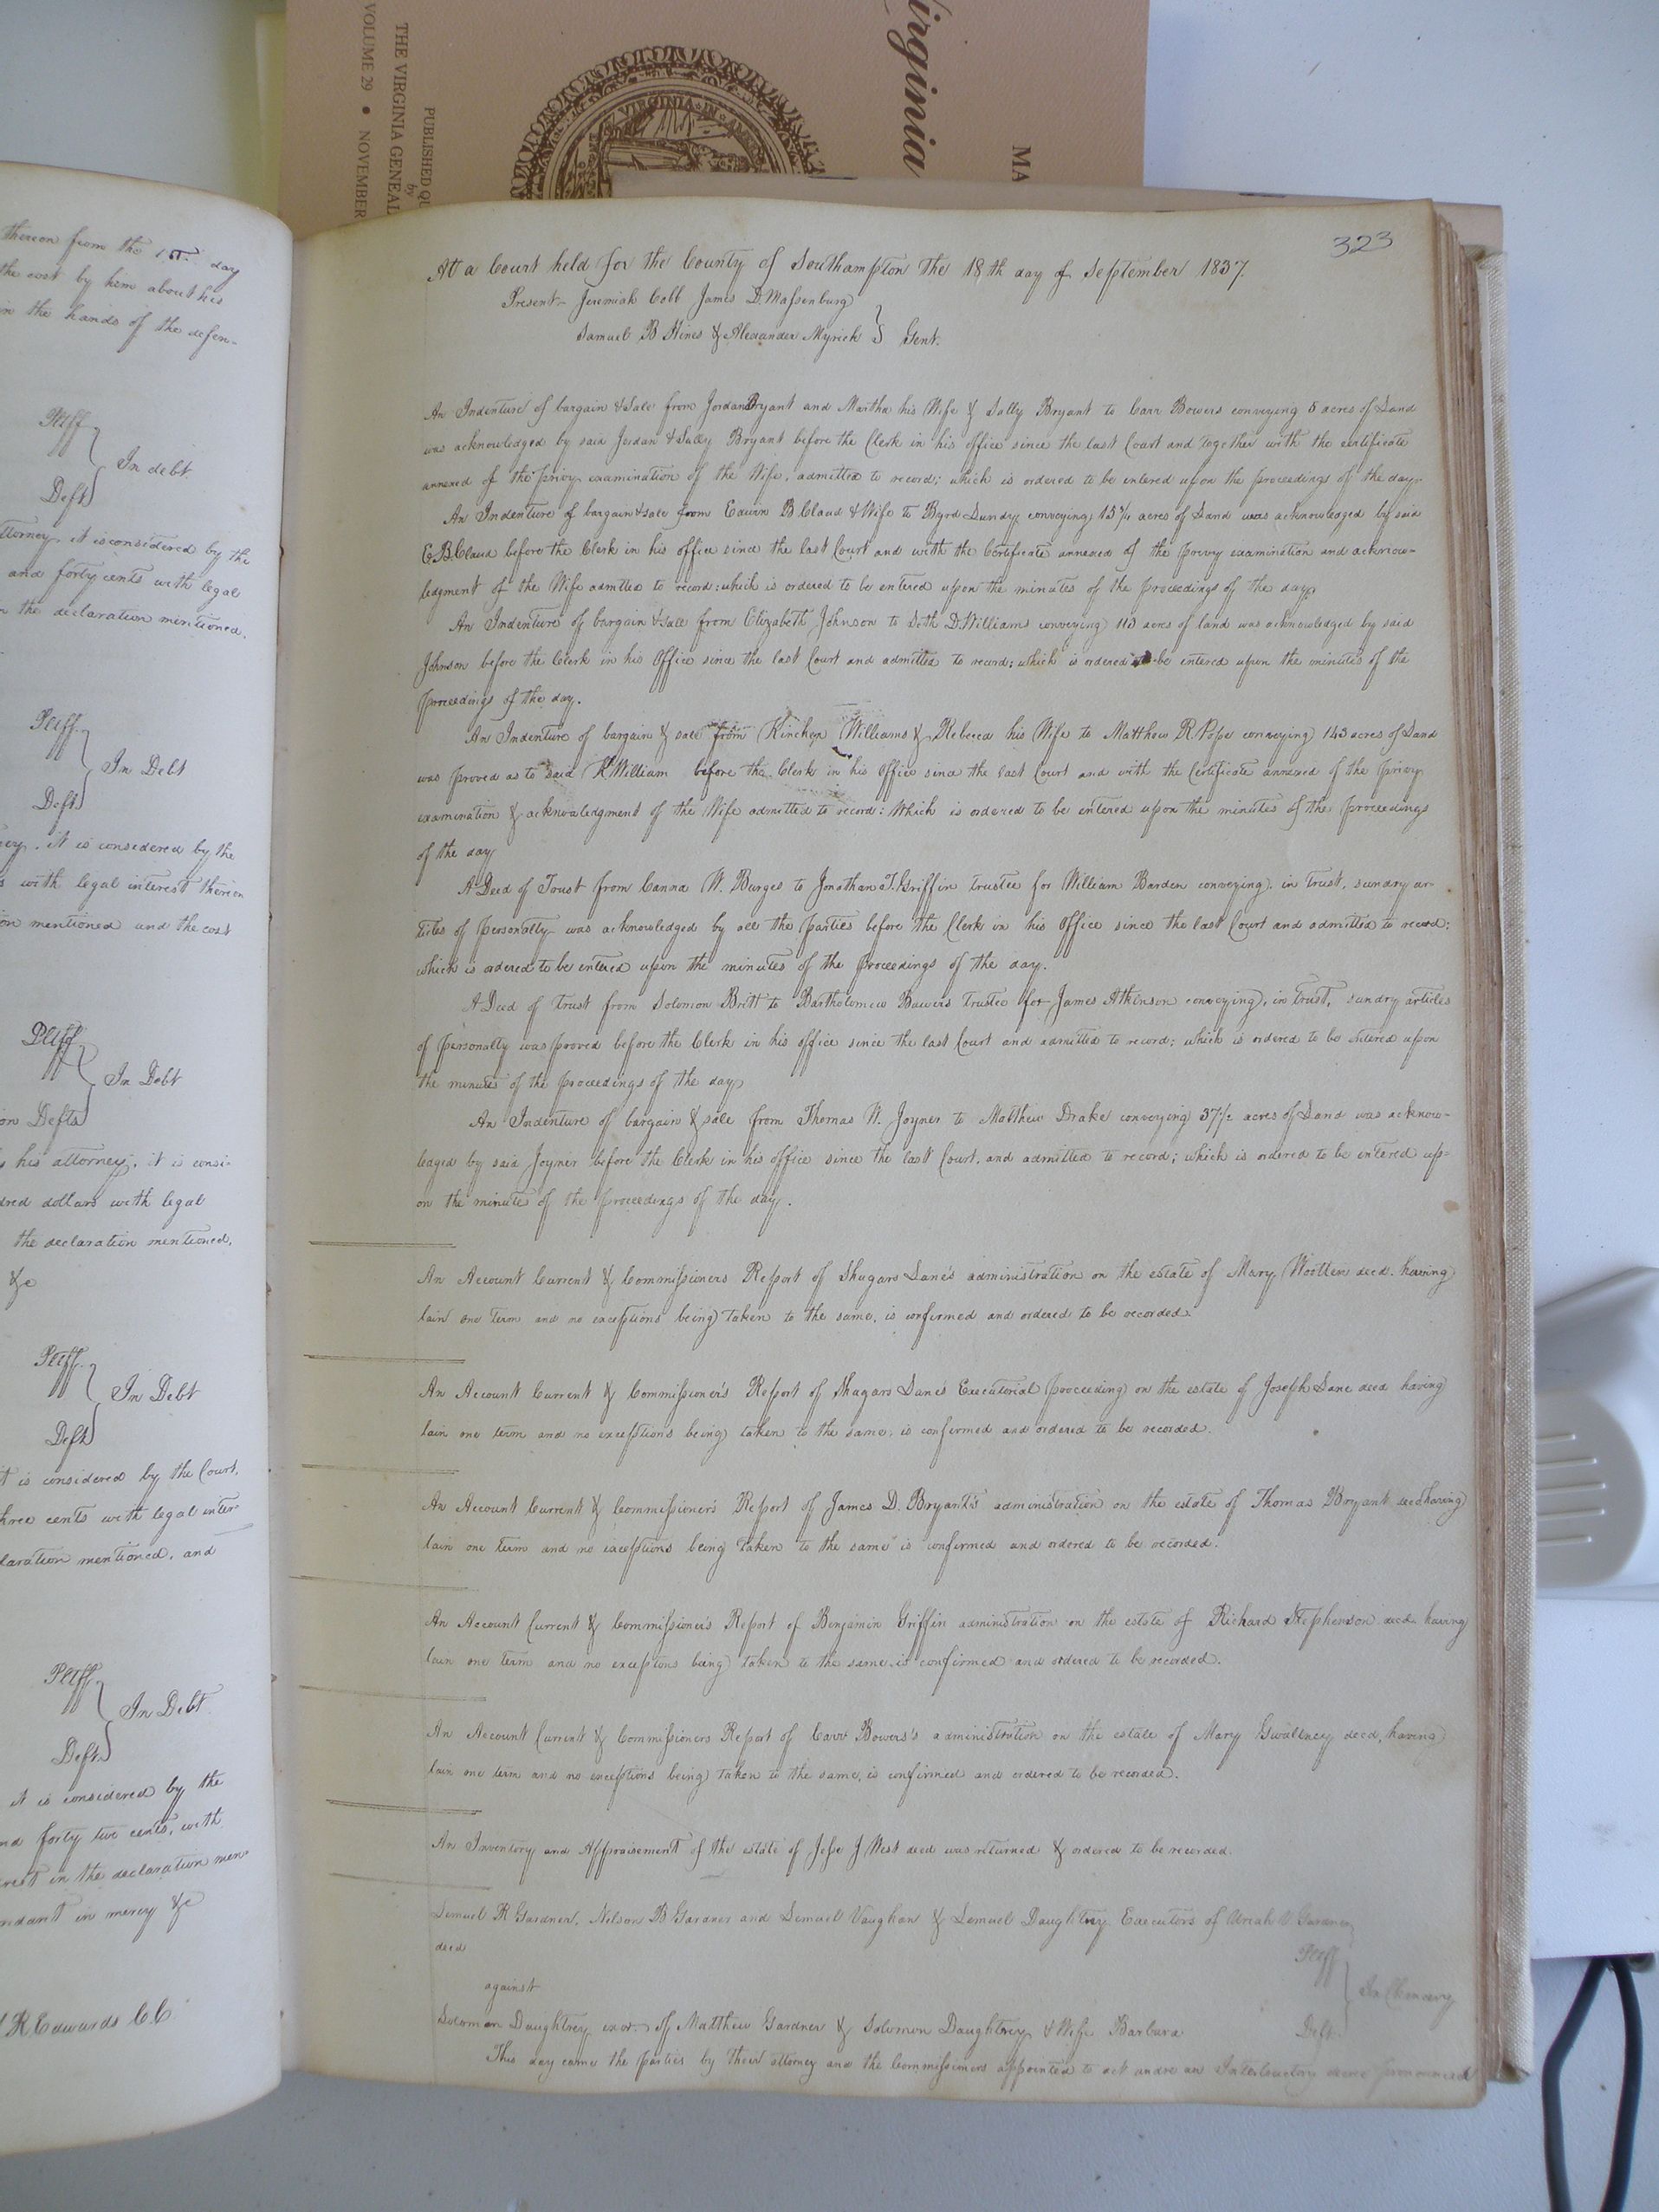 irginia
MA
PUBLISHED QU
by
THE VIRGINIA GENEAL
VOLUME 29 • NOVEMBER
VIRGINIA IN A
thereon from the 1st day
the cost by him about his
in the hands of the defen-
Pltff
In debt
Deft
ttorney, it is considered by the
and forty cents with legal
the declaration mentioned.
Pltff
In Debt
Deft
it is considered by the
with legal interest thereon
on mentioned and the cost
Pltff
In Debt
on Defts
his attorney, it is consi-
dred dollars with legal
the declaration mentioned,
&c
Pltff
In Debt
Deft
it is considered by the Court,
three cents with legal inter
laration mentioned, and
Pltff
In Debt
Deft
it is considered by the
nd forty two cents, with
rest in the declaration men-
ndant in mercy &c
R Edwards C C
323
At a Court held for the County of Southampton the 18th day of September 1837.
Present Jeremiah Cobb James D. Massenburg
Samuel B Hines & Alexander Myrick } Gent.
An Indenture of bargain & sale from Jordan Bryant and Martha his Wife & Sally Bryant to Carr Bowers conveying 5 acres of Land
was acknowledged by said Jordan & Sally Bryant before the Clerk in his office since the last Court and together with the certificate
annexed of the privy examination of the Wife, admitted to record; which is ordered to be entered upon the proceedings of the day.
An Indenture of bargain & sale from Edwin B Claud & Wife to Byrd Lundy conveying acres of Land was acknowledged by said
E. B. Claud before the Clerk in his office since the last Court and with the Certificate annexed of the privy examination and acknow-
ledgment of the Wife admitted to record: which is ordered to be entered upon the minutes of the proceedings of the day.
An Indenture of bargain & sale from Elizabeth Johnson to Seth D. Williams conveying 113 acres of land was acknowledged by said
Johnson before the Clerk in his Office since the last Court and admitted to record; which is ordered to be entered upon the minutes of the
proceedings of the day.
An Indenture of bargain & sale from Kinchen Williams & Rebecca his Wife to Matthew R. Pope conveying 143 acres of Land
was proved as to said K William before the Clerk in his Office since the last Court and with the Certificate annexed of the privy
examination & acknowledgment of the Wife admitted to record: Which is ordered to be entered upon the minutes of the proceedings
of the day
A Deed of Trust from Canna W. Barges to Jonathan T. Griffin trustee for William Barden conveying, in trust, sundry ar-
ticles of personalty was acknowledged by all the parties before the Clerk in his Office since the last Court and admitted to record;
which is ordered to be entered upon the minutes of the proceedings of the day.
A Deed of trust from Solomon Britt to Bartholomew Bowers trustee for James Atkinson conveying, in trust, sundry articles
of personalty was proved before the Clerk in his office since the last Court and admitted to record; which is ordered to be entered upon
the minutes of the proceedings of the day
An Indenture of bargain & sale from Thomas N. Joyner to Matthew Drake conveying 37½ acres of Land was acknow-
ledged by said Joyner before the Clerk in his office since the last Court, and admitted to record; which is ordered to be entered up-
on the minutes of the proceedings of the day.
An Account Current & Commissioners Report of Shugars Lane's administration on the estate of Mary Wootten decd. having
lain one term and no exceptions being taken to the same, is confirmed and ordered to be recorded.
An Account Current & Commissioner's Report of Shugars Lane's Executorial proceeding on the estate of Joseph Lane decd having
lain one term and no exceptions being taken to the same, is confirmed and ordered to be recorded.
An Account Current & Commissioner's Report of James D. Bryant's administration on the estate of Thomas Bryant decd having
lain one term and no exceptions being taken to the same is confirmed and ordered to be recorded.
An Account Current & Commissioner's Report of Benjamin Griffin administration on the estate of Richard Stephenson decd. having
lain one term and no exceptions being taken to the same is confirmed and ordered to be recorded.
An Account Current & Commissioners Report of Carr Bowers's administration on the estate of Mary Gwaltney decd, having
lain one term and no exceptions being taken to the same, is confirmed and ordered to be recorded.
An Inventory and Appraisement of the estate of Jesse J West decd was returned & ordered to be recorded.
Lemuel R Gardner, Nelson B Gardner and Lemuel Vaughan & Lemuel Daughtrey Executors of Uriah V. Gardner
decd
Pltff
against
In Chancery
Solomon Daughtrey exor. of Matthew Gardner & Solomon Daughtrey & Wife Barbara
Deft
This day came the parties by their attorney and the Commissioners appointed to act under an Interlocutory decree pronounced